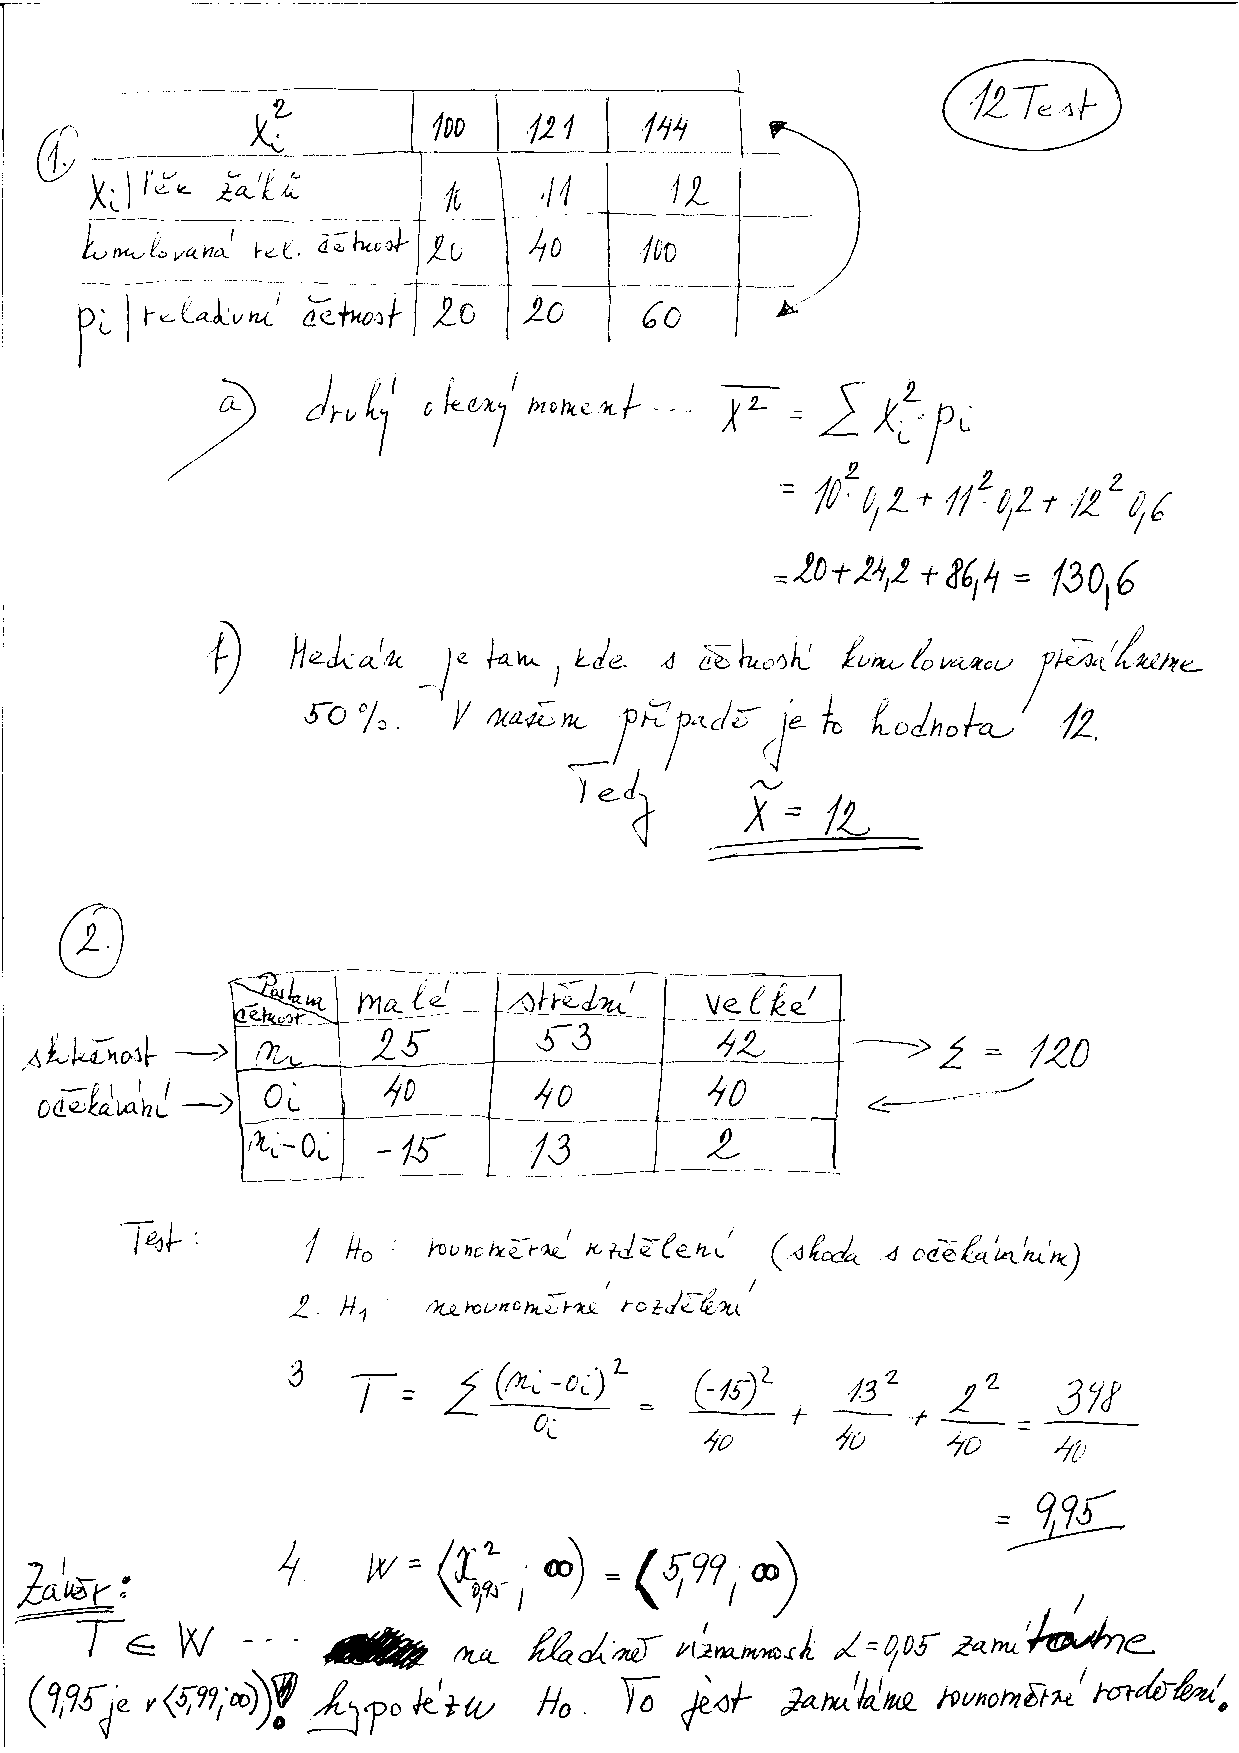 12 Test
1.
xi² | 100 | 121 | 144
xi | věk žáků | 10 | 11 | 12
kumulovaná rel. četnost | 20 | 40 | 100
pi | relativní četnost | 20 | 20 | 60
a) druhý obecný moment ... x² = ∑ xi² · pi
= 10² · 0,2 + 11² · 0,2 + 12² 0,6
= 20 + 24,2 + 86,4 = 130,6
b) Medián je tam, kde s četností kumulovanou přesáhneme
50 %. V našem případě je to hodnota 12.
Tedy x̃ = 12
2.
Postava četnost | malé | střední | velké
skutečnost → ni | 25 | 53 | 42 → Σ = 120
očekávání → oi | 40 | 40 | 40 ←
ni-oi | -15 | 13 | 2
Test: 1 H₀ : rovnoměrné rozdělení (shoda s očekáváním)
2. H₁ : nerovnoměrné rozdělení
3 T = Σ (ni-oi)²/oi = (-15)²/40 + 13²/40 + 2²/40 = 398/40
= 9,95
4. W = ⟨χ²0,95 ; ∞) = ⟨5,99 ; ∞)
Závěr:
T ∈ W ---- na hladině významnosti α = 0,05 zamítáme
(9,95 je v ⟨5,99; ∞))! hypotézu H₀. To jest zamítáme rovnoměrné rozdělení.